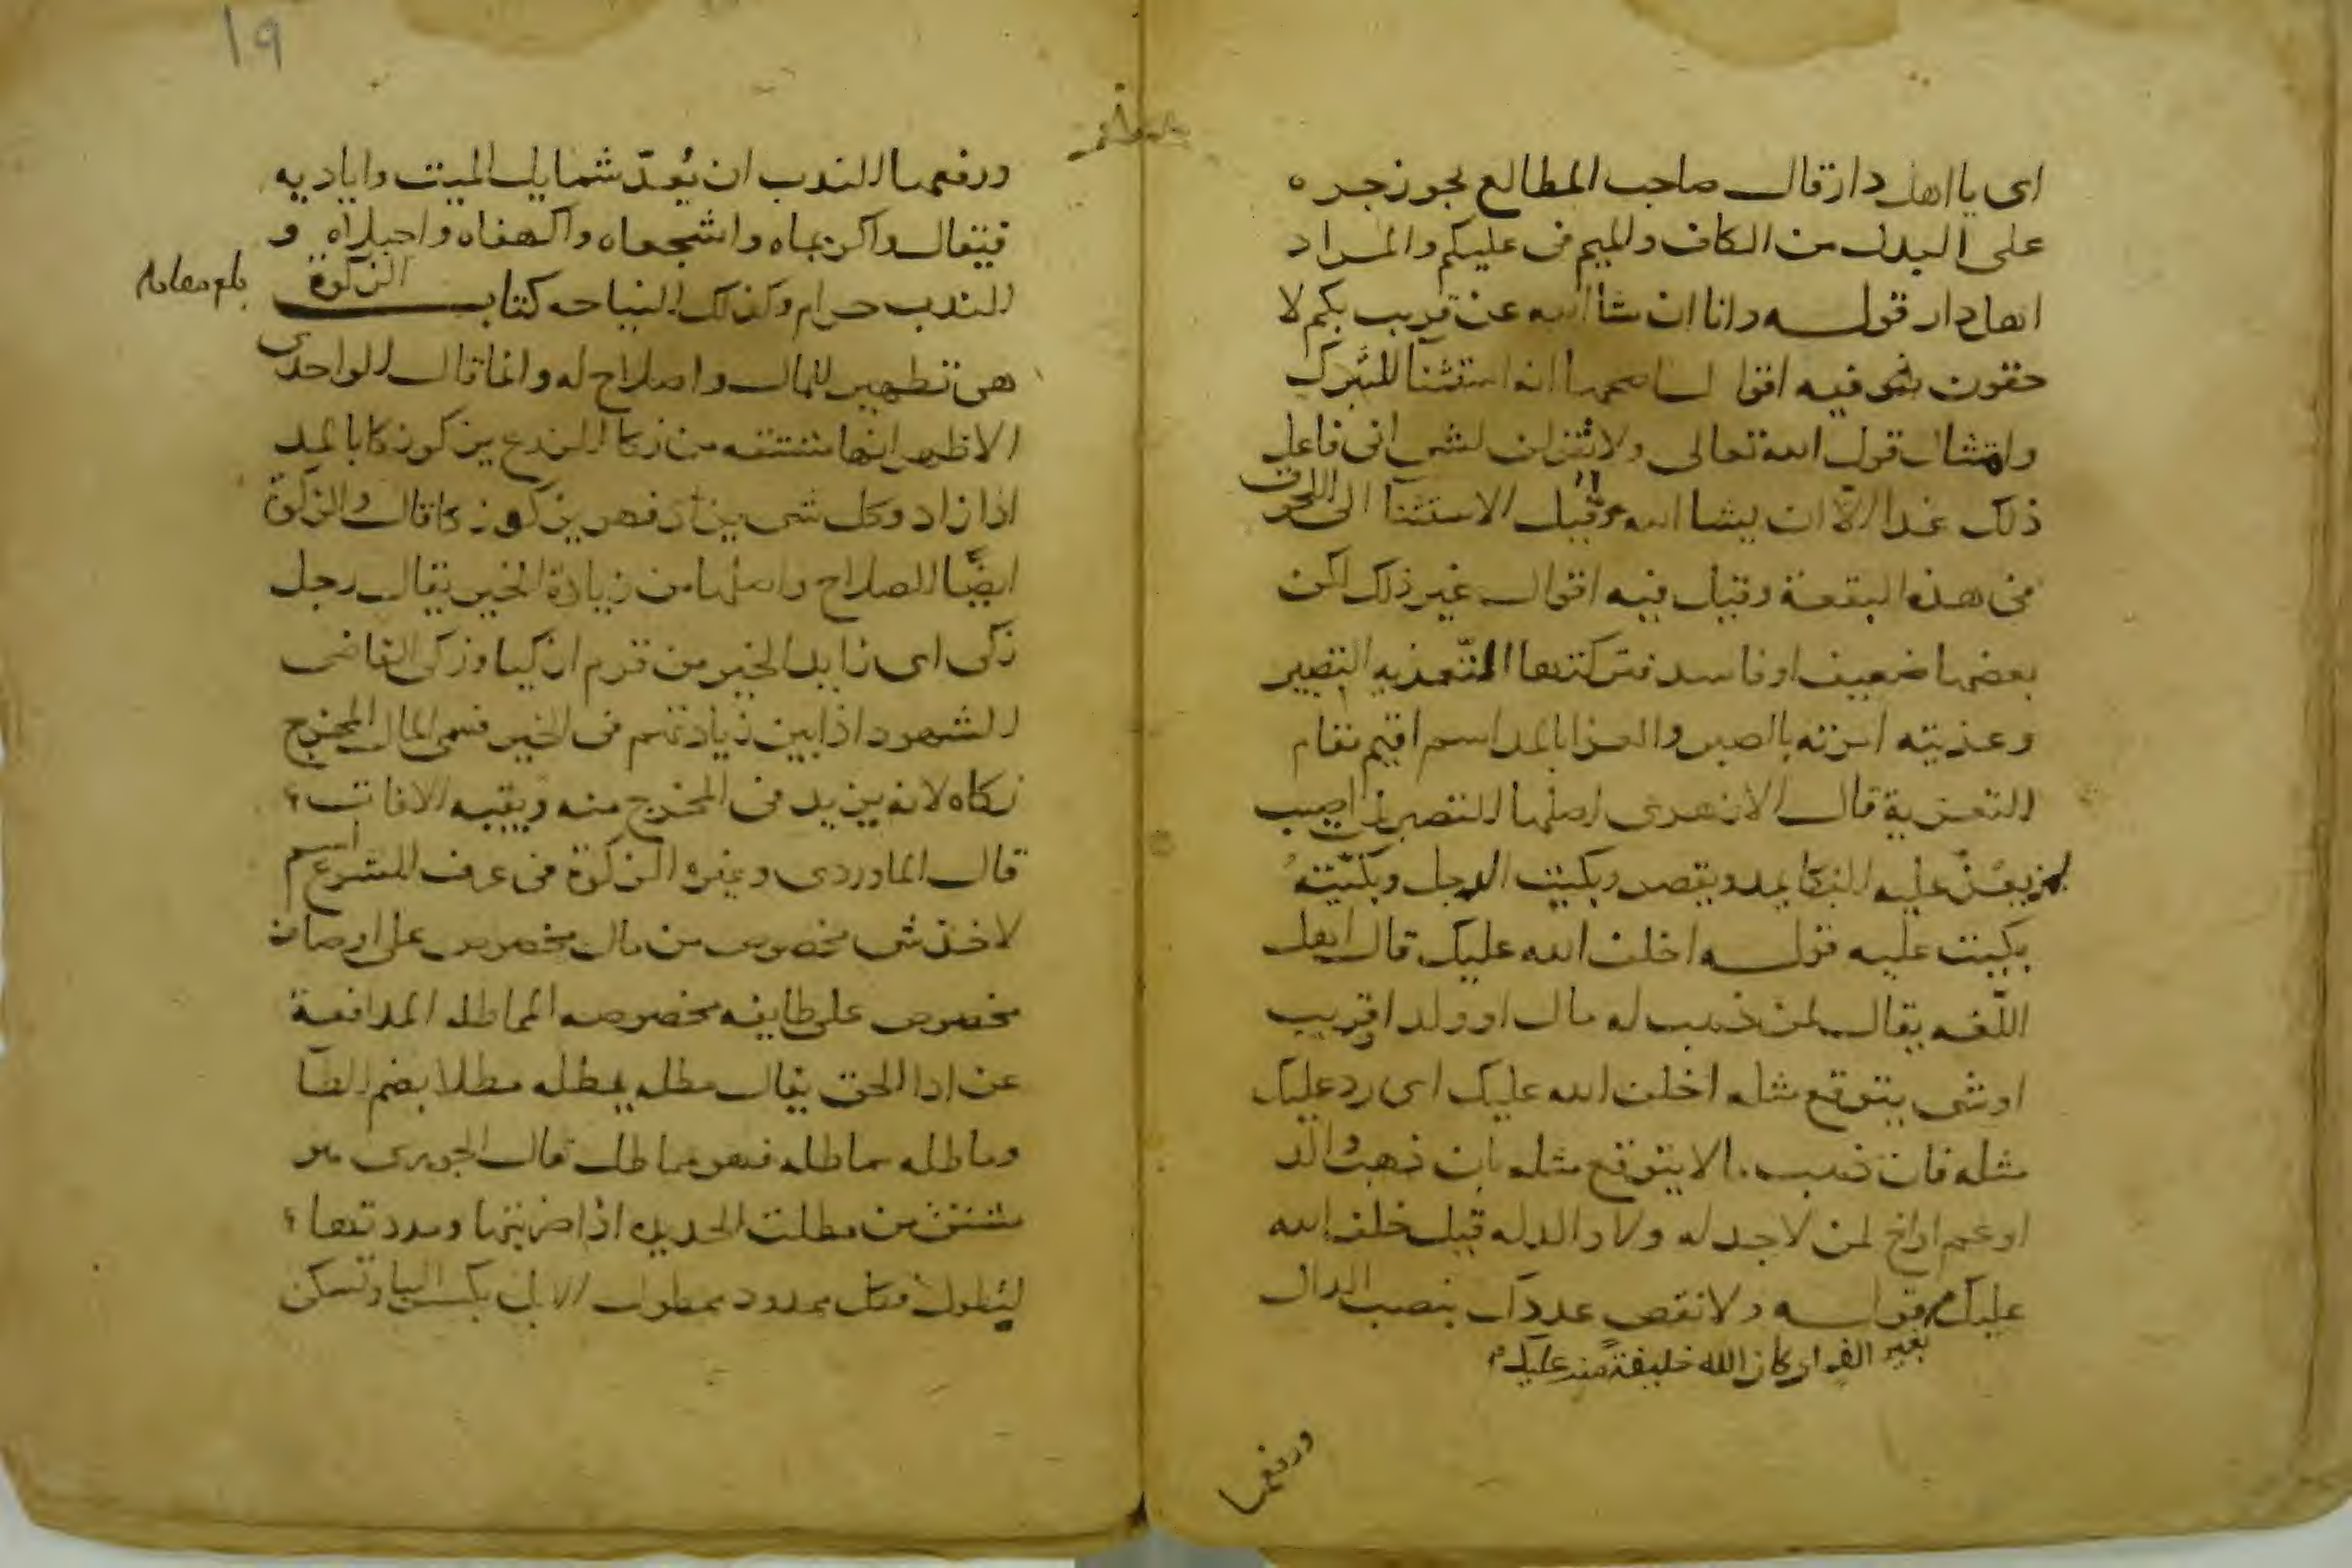 اى يا اهل دار قال صاحب المطالع يجوز جره
على البدل من الكاف والميم فى عليكم والمراد
اهل دار قوله وانا ان شا الله عن قريب بكم لا
حقون فيه اقوال اصحها انه استثنا للتبرك
وامتثال قول الله تعالى ولا تقولن لشى انى فاعل
ذلك غدا الا ان يشا الله وقيل الاستثنا الى اللحوق
فى هذه البقعة وقيل فيه اقوال غير ذلك لكن
بعضها ضعيف او فاسد فتركتها التعزيه التصبير
وعزيته امرته بالصبر والعزا بالمد اسم اقيم مقام
التعزية قال الازهرى اصلها التصبير لمن اصيب
بمن يعز عليه البكا يمد ويقصر وبكيت الرجل وبكيته
بكيت عليه قوله اخلف الله عليك قال اهل
اللغه يقال لمن ذهب له مال او ولد او قريب
او شى يتوقع مثله اخلف الله عليك اى رد عليك
مثله فان ذهب ما لا يتوقع مثله بان ذهب والد
او عم او اخ لمن لا جد له ولا والد له قيل خلف الله
عليك قوله ولا نقص عددك بنصب الدال
بغير الف اى كان الله خليفة منه عليك
ورفعها
١٩
ورفعها الندب ان يُعدّ شمايل الميت واياديه
فيقال واكريماه واشجعاه واكهفاه واجبلاه و
الندب حرام وكذلك النياحه كتاب الزكوة
هى تطهير للمال واصلاح له وانما قال الواحدى
الاظهر انها مشتقه من زكا الزرع يزكو زكا بالمد
اذا زاد وكل شى يزداد فهو يزكو زكا قال والزكوة
ايضًا الصلاح واصلها من زيادة الخير يقال رجل
زكى اى زايد الخير من قوم ازكيا وزكى القاضى
الشهود اذا بين زيادتهم فى الخير فسمى المال المخرج
زكاه لانه يزيد فى المخرج منه ويقيه الافات
قال الماوردى وغيره الزكوة فى عرف الشرع اسم
لاخذ شى مخصوص من مال مخصوص على اوصاف
مخصوص على طايفه مخصوصه المماطله المدافعة
عن ادا الحق يقال مطله يمطله مطلا بضم الطا
وماطله مماطله فهو مماطل قال الجوهرى هو
مشتق من مطلت الحديده اذا ضربتها ومددتها
ليطول وكل ممدود ممطول الابل بكسر البا وتسكن